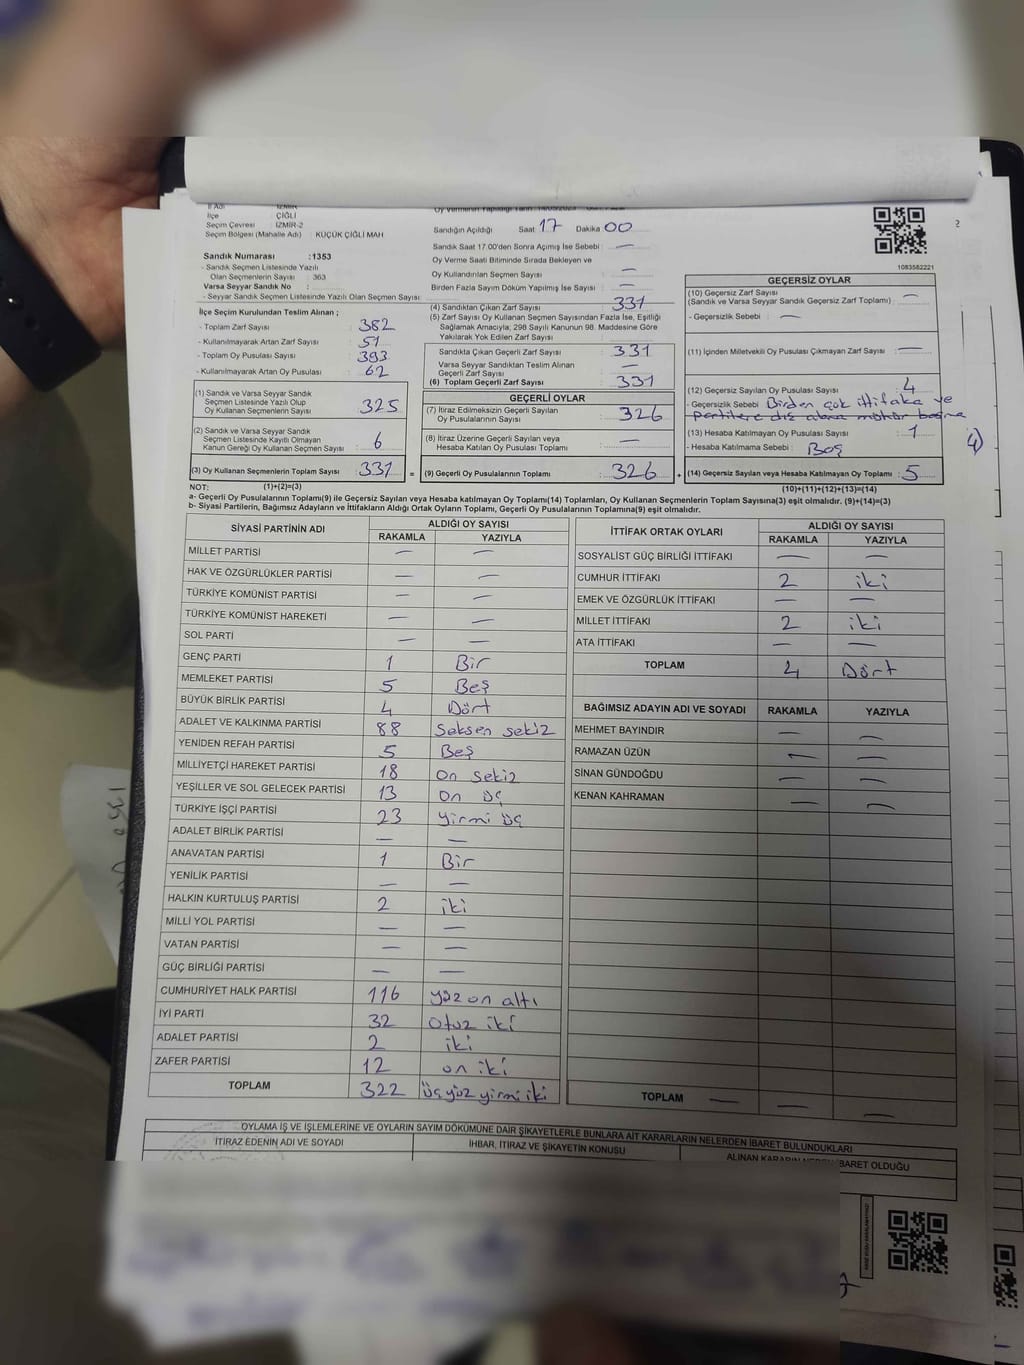 İl Adı : İZMİR
İlçe : ÇİĞLİ
Seçim Çevresi : İZMİR-2
Seçim Bölgesi (Mahalle Adı) : KÜÇÜK ÇİĞLİ MAH
Sandık Numarası :1353
- Sandık Seçmen Listesinde Yazılı
Olan Seçmenlerin Sayısı : 363
Varsa Seyyar Sandık No :
- Seyyar Sandık Seçmen Listesinde Yazılı Olan Seçmen Sayısı
İlçe Seçim Kurulundan Teslim Alınan ;
- Toplam Zarf Sayısı : 382
- Kullanılmayarak Artan Zarf Sayısı : 51
- Toplam Oy Pusulası Sayısı : 393
- Kullanılmayarak Artan Oy Pusulası : 62
(1) Sandık ve Varsa Seyyar Sandık
Seçmen Listesinde Yazılı Olup
Oy Kullanan Seçmenlerin Sayısı : 325
(2) Sandık ve Varsa Seyyar Sandık
Seçmen Listesinde Kayıtlı Olmayan
Kanun Gereği Oy Kullanan Seçmen Sayısı : 6
(3) Oy Kullanan Seçmenlerin Toplam Sayısı : 331 =
Sandığın Açıldığı Saat 17 Dakika 00
Sandık Saat 17.00'den Sonra Açımış İse Sebebi : —
Oy Verme Saati Bitiminde Sırada Bekleyen ve
Oy Kullandırılan Seçmen Sayısı : —
Birden Fazla Sayım Döküm Yapılmış İse Sayısı : —
(4) Sandıktan Çıkan Zarf Sayısı : 331
(5) Zarf Sayısı Oy Kullanan Seçmen Sayısından Fazla İse, Eşitliği
Sağlamak Amacıyla; 298 Sayılı Kanunun 98. Maddesine Göre
Yakılarak Yok Edilen Zarf Sayısı :
Sandıkta Çıkan Geçerli Zarf Sayısı : 331
Varsa Seyyar Sandıktan Teslim Alınan
Geçerli Zarf Sayısı : —
(6) Toplam Geçerli Zarf Sayısı : 331
GEÇERLİ OYLAR
(7) İtiraz Edilmeksizin Geçerli Sayılan
Oy Pusulalarının Sayısı : 326
(8) İtiraz Üzerine Geçerli Sayılan veya
Hesaba Katılan Oy Pusulaları Toplamı : —
(9) Geçerli Oy Pusulalarının Toplamı : 326 +
2
1083582221
GEÇERSİZ OYLAR
(10) Geçersiz Zarf Sayısı : —
(Sandık ve Varsa Seyyar Sandık Geçersiz Zarf Toplamı)
- Geçersizlik Sebebi : —
(11) İçinden Milletvekili Oy Pusulası Çıkmayan Zarf Sayısı : —
(12) Geçersiz Sayılan Oy Pusulası Sayısı : 4
- Geçersizlik Sebebi Birden çok ittifaka ve
(13) Hesaba Katılmayan Oy Pusulası Sayısı : 1
- Hesaba Katılmama Sebebi : Boş
(14) Geçersiz Sayılan veya Hesaba Katılmayan Oy Toplamı : 5
NOT: (1)+(2)=(3) (10)+(11)+(12)+(13)=(14)
a- Geçerli Oy Pusulalarının Toplamı(9) ile Geçersiz Sayılan veya Hesaba katılmayan Oy Toplamı(14) Toplamları, Oy Kullanan Seçmenlerin Toplam Sayısına(3) eşit olmalıdır. (9)+(14)=(3)
b- Siyasi Partilerin, Bağımsız Adayların ve İttifakların Aldığı Ortak Oyların Toplamı, Geçerli Oy Pusulalarının Toplamına(9) eşit olmalıdır.
SİYASİ PARTİNİN ADI ALDIĞI OY SAYISI
RAKAMLA YAZIYLA
MİLLET PARTİSİ — —
HAK VE ÖZGÜRLÜKLER PARTİSİ — —
TÜRKİYE KOMÜNİST PARTİSİ — —
TÜRKİYE KOMÜNİST HAREKETİ — —
SOL PARTİ — —
GENÇ PARTİ 1 Bir
MEMLEKET PARTİSİ 5 Beş
BÜYÜK BİRLİK PARTİSİ 4 Dört
ADALET VE KALKINMA PARTİSİ 88 Seksen sekiz
YENİDEN REFAH PARTİSİ 5 Beş
MİLLİYETÇİ HAREKET PARTİSİ 18 On sekiz
YEŞİLLER VE SOL GELECEK PARTİSİ 13 On üç
TÜRKİYE İŞÇİ PARTİSİ 23 Yirmi üç
ADALET BİRLİK PARTİSİ — —
ANAVATAN PARTİSİ 1 Bir
YENİLİK PARTİSİ — —
HALKIN KURTULUŞ PARTİSİ 2 iki
MİLLİ YOL PARTİSİ — —
VATAN PARTİSİ — —
GÜÇ BİRLİĞİ PARTİSİ — —
CUMHURİYET HALK PARTİSİ 116 yüz on altı
İYİ PARTİ 32 Otuz iki
ADALET PARTİSİ 2 iki
ZAFER PARTİSİ 12 on iki
TOPLAM 322 üçyüz yirmi iki
İTTİFAK ORTAK OYLARI ALDIĞI OY SAYISI
RAKAMLA YAZIYLA
SOSYALİST GÜÇ BİRLİĞİ İTTİFAKI — —
CUMHUR İTTİFAKI 2 iki
EMEK VE ÖZGÜRLÜK İTTİFAKI — —
MİLLET İTTİFAKI 2 iki
ATA İTTİFAKI — —
TOPLAM 4 Dört
BAĞIMSIZ ADAYIN ADI VE SOYADI RAKAMLA YAZIYLA
MEHMET BAYINDIR — —
RAMAZAN ÜZÜN — —
SİNAN GÜNDOĞDU — —
KENAN KAHRAMAN — —
TOPLAM — — —
OYLAMA İŞ VE İŞLEMLERİNE VE OYLARIN SAYIM DÖKÜMÜNE DAİR ŞİKAYETLERLE BUNLARA AİT KARARLARIN NELERDEN İBARET BULUNDUKLARI
İTİRAZ EDENİN ADI VE SOYADI İHBAR, İTİRAZ VE ŞİKAYETİN KONUSU ALINAN KARARIN NEDEN İBARET OLDUĞU